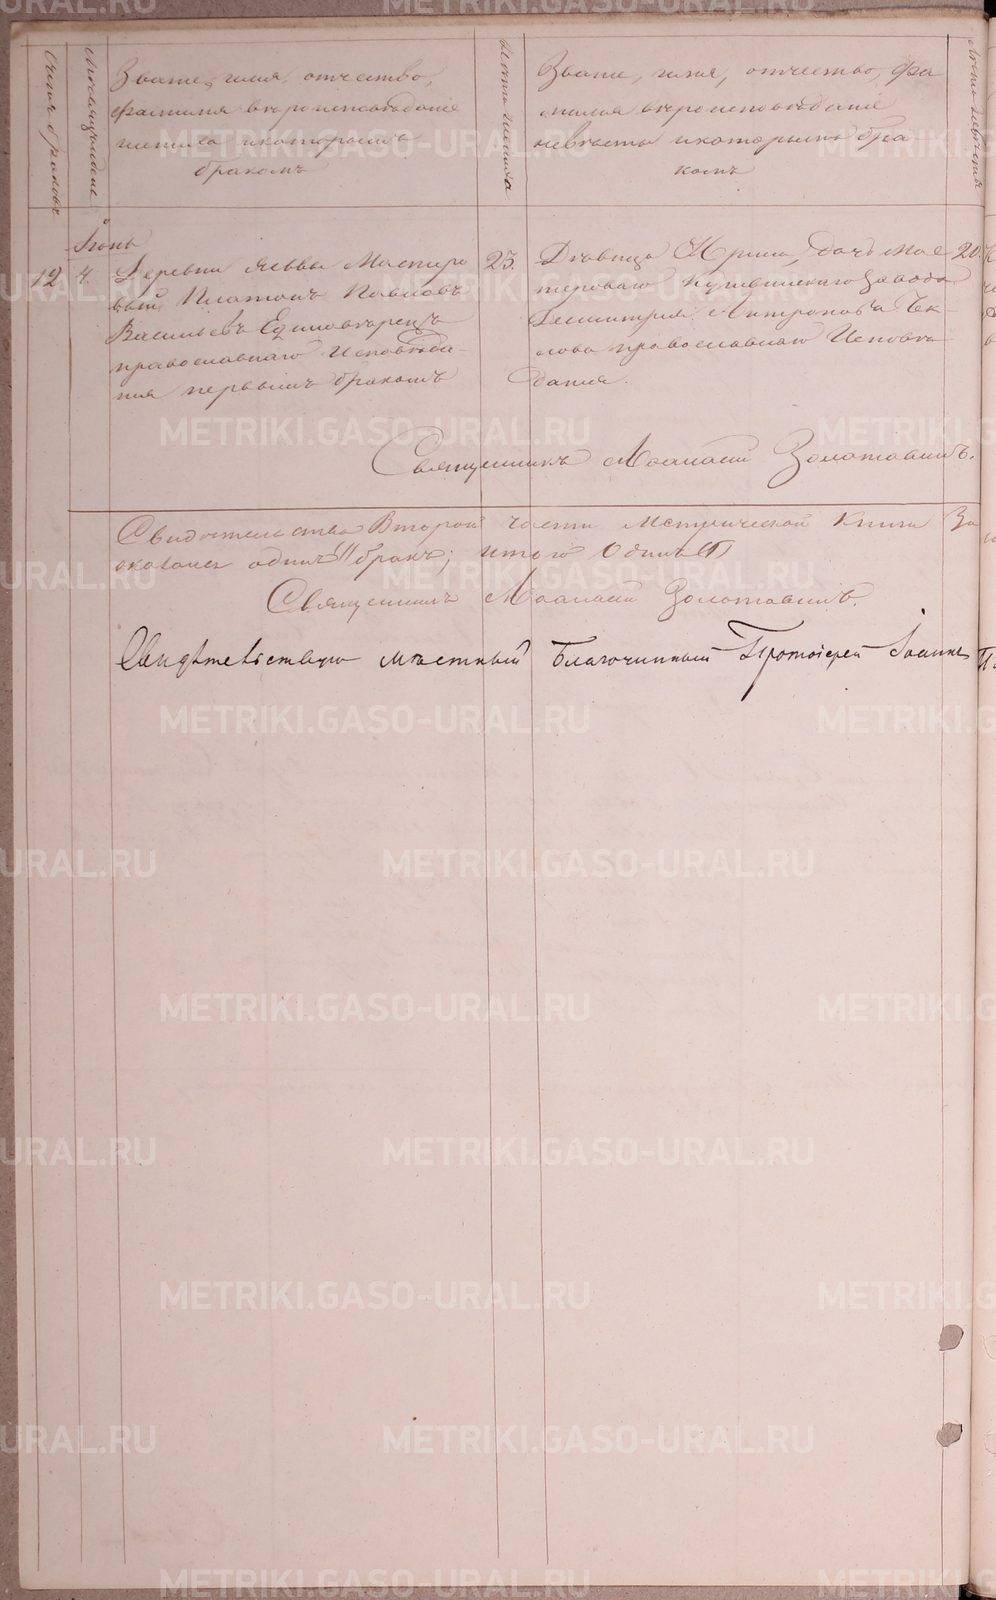 Счетъ браковъ
Месяцъ и день
Званiе, имя, отчество,
фамилiя вѣроисповѣданiе
жениха и которымъ
бракомъ
Лѣта жениха
Званiе, имя, отчество, фа
милiя вѣроисповѣданiе
невѣсты и которымъ бра
комъ
Лѣта невѣсты
Iюнь
12
4.
Деревни Мастеро
вый Платонъ Павловъ
Васильевъ Единовѣрецъ
православнаго Исповѣда-
нiя первымъ бракомъ
23.
Дѣвица Ирина, дочь Мас
тероваго Кушвинскаго Завода
Димитрiя Митрофанова Бѣ-
лова православнаго Исповѣ
данiя.
20.
Священникъ Аѳанасiй Золотавинъ.
Свидетельство Второй части Метрической Книги За
оказался одинъ бракъ; итого Одинъ
Священникъ Аѳанасiй Золотавинъ.
Свидѣтельствую мѣстный Благочинный Протоiерей Iоаннъ
METRIKI.GASO-URAL.RU